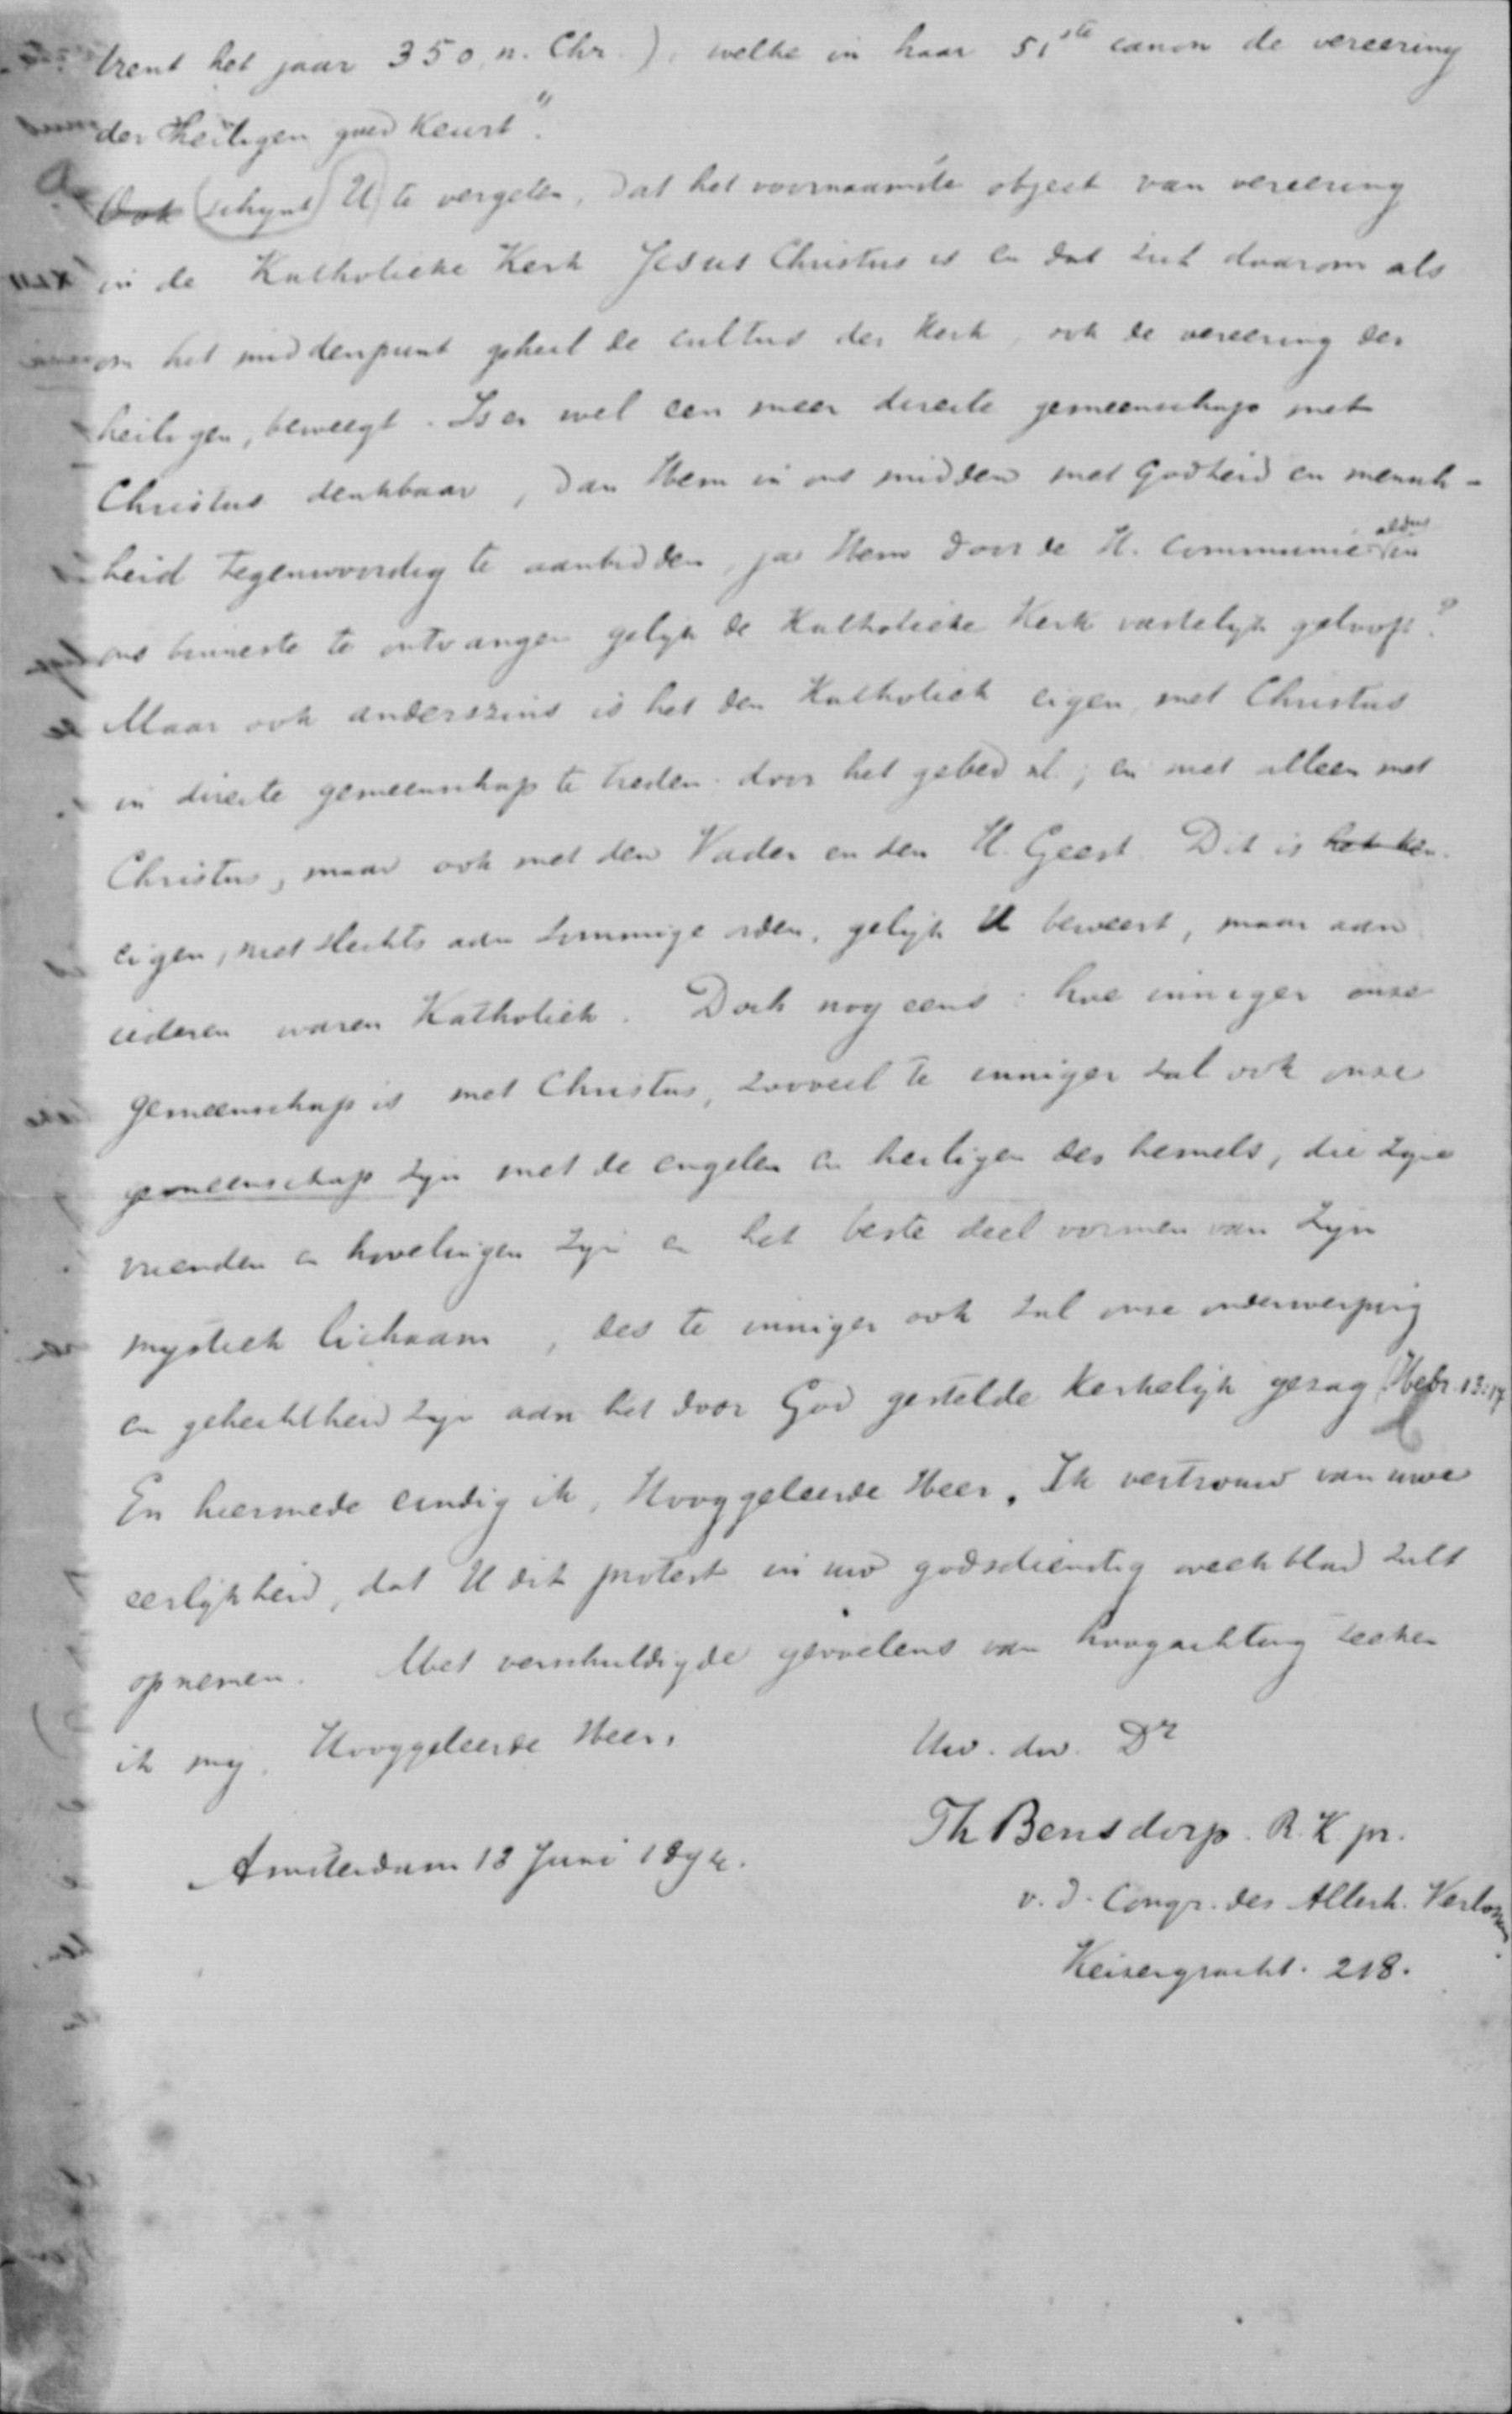 trent het jaar 350, n. Chr.), welke in haar 51ste canon de vereering
der Heiligen goed keurt".
Ook schynt U te vergeten, dat het voornaamste object van vereering
in de Katholieke Kerk Jesus Christus is en dat zich daarom als
om het middenpunt geheel de cultus der Kerk, ook de vereering der
heiligen, beweegt. Is er wel een meer directe gemeenschap met
Christus denkbaar, dan Hem in ons midden met Godheid en mensch-
heid tegenwoordig te aanbidden, ja Hem door de H. Communie aldus in
ons binnenste te ontvangen gelyk de Katholieke Kerk vastelyk gelooft?
Maar ook anderszins is het den Katholiek eigen, met Christus
in directe gemeenschap te treden door het gebed nl.; en niet alleen met
Christus, maar ook met den Vader en den H. Geest. Dit is het ken-
eigen, niet slechts aan sommige orden, gelijk U beweert, maar aan
iederen waren Katholiek. Doch nog eens: hoe inniger onze
gemeenschap is met Christus, zooveel te inniger zal ook onze
gemeenschap zyn met de engelen en heiligen des hemels, die zyne
vrienden en hovelingen zyn en het beste deel vormen van Zyn
mystiek lichaam, des te inniger ook zal onze onderwerping
en gehechtheid zyn aan het door God gestelde Kerkelijk gezag (Hebr. 13:17
En hiermede eindig ik, Hooggeleerde Heer. Ik vertrouw van uwe
eerlijkheid, dat U dit protest in uw godsdienstig weekblad zult
opnemen. Met verschuldigde gevoelens van hoogachting teeken
ik mij, Hooggeleerde Heer,
Uw. dw. Dr
Th Bensdorp. R. K. pr.
Amsterdam 13 Juni 1894.
v. d. Congr. des Allerh. Verlossers.
Keizersgracht. 218.